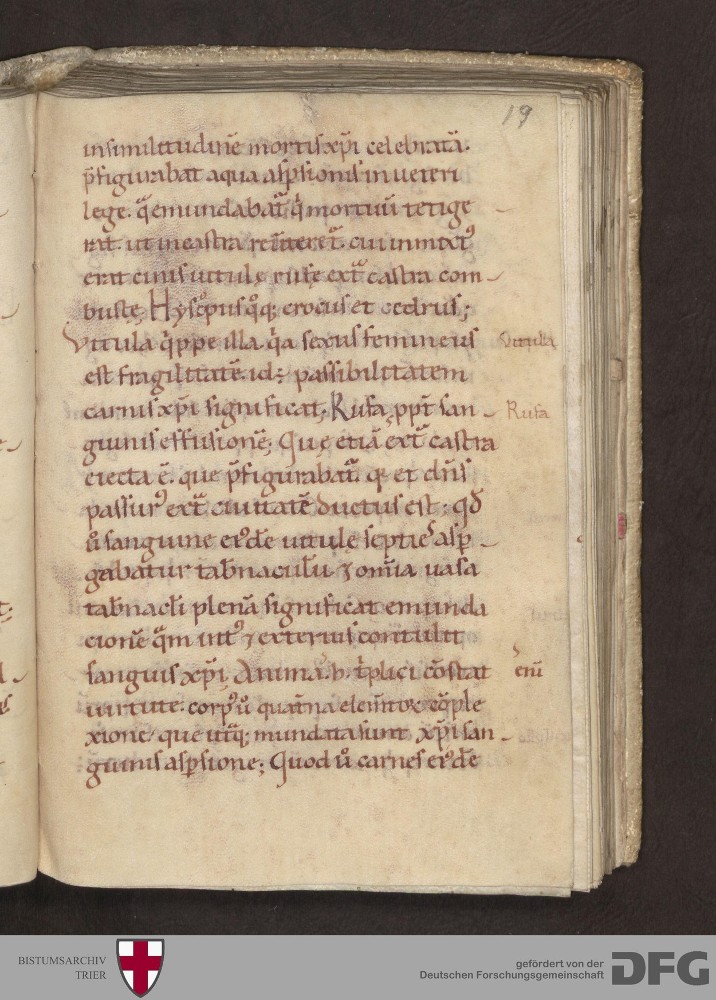 19
insimilitudinē mortis xp̄i celebratā.
p̄figurabat aqua asp̄sionis in ueteri
lege. q̄ emundabat᷒ q̄ mortuū tetige
rat. ut in castra reūteret᷒. cui inmixt᷒
erat cinis uitulę rufę ext᷒ castra com-
bustę, Hysopus q̊q; crocus et cedrus;
Vitula q̄ppe illa. q̄a sexus femineus
Vitula
est fragilitatē. id÷ passibilitatem
carnis xp̄i significat; Rufa, ppt̄ san-
Rufa
guinis effusionē; Quę etiā ext᷒ castra
eiecta ē. que p̄figurabat᷒. qꝫ et dn̄s
passur᷒ ext᷒ ciuitatē ductus est; qđ
ů sanguine ei᷒dē uitulę septies asp̄-
gabatur tab̄naculū ⁊ om̄ia uasa
tab̄nacl̄i plenā significat emunda
cionē q̄m int᷒ ⁊ exterius contulit
sanguis xp̄i. Anima .h. t̄plici cōstat
enī
uirtute. corp᷒ ů quat̄na elem̄toꝝ cōple
xione. que utq̄; mundata sunt xp̄i san-
guinis asp̄sione; Quod ů carnes ei᷒dē
BISTUMSARCHIV
TRIER
gefördert von der
Deutschen Forschungsgemeinschaft
DFG